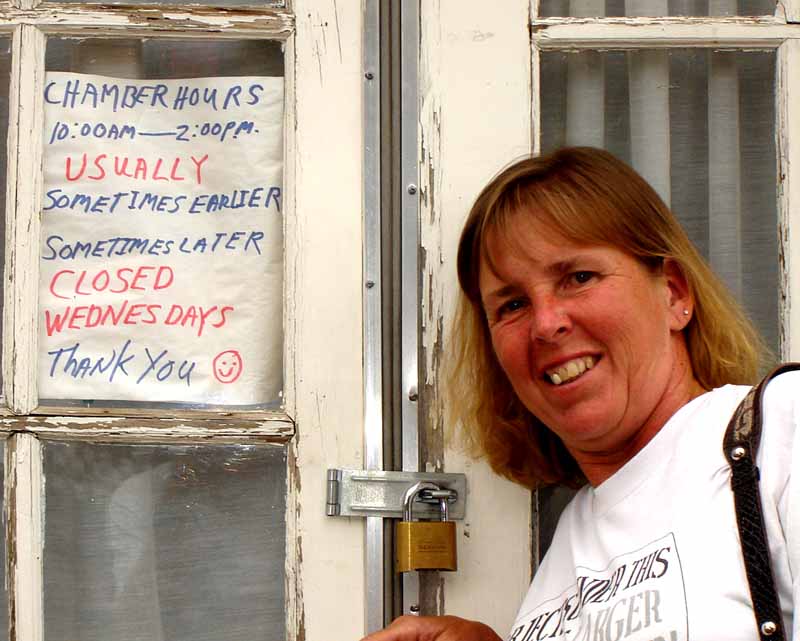 CHAMBER HOURS
10:00AM—2:00P.M.
USUALLY
SOMETIMES EARLIER
SOMETIMES LATER
CLOSED
WEDNESDAYS
THANK YOU
THIS